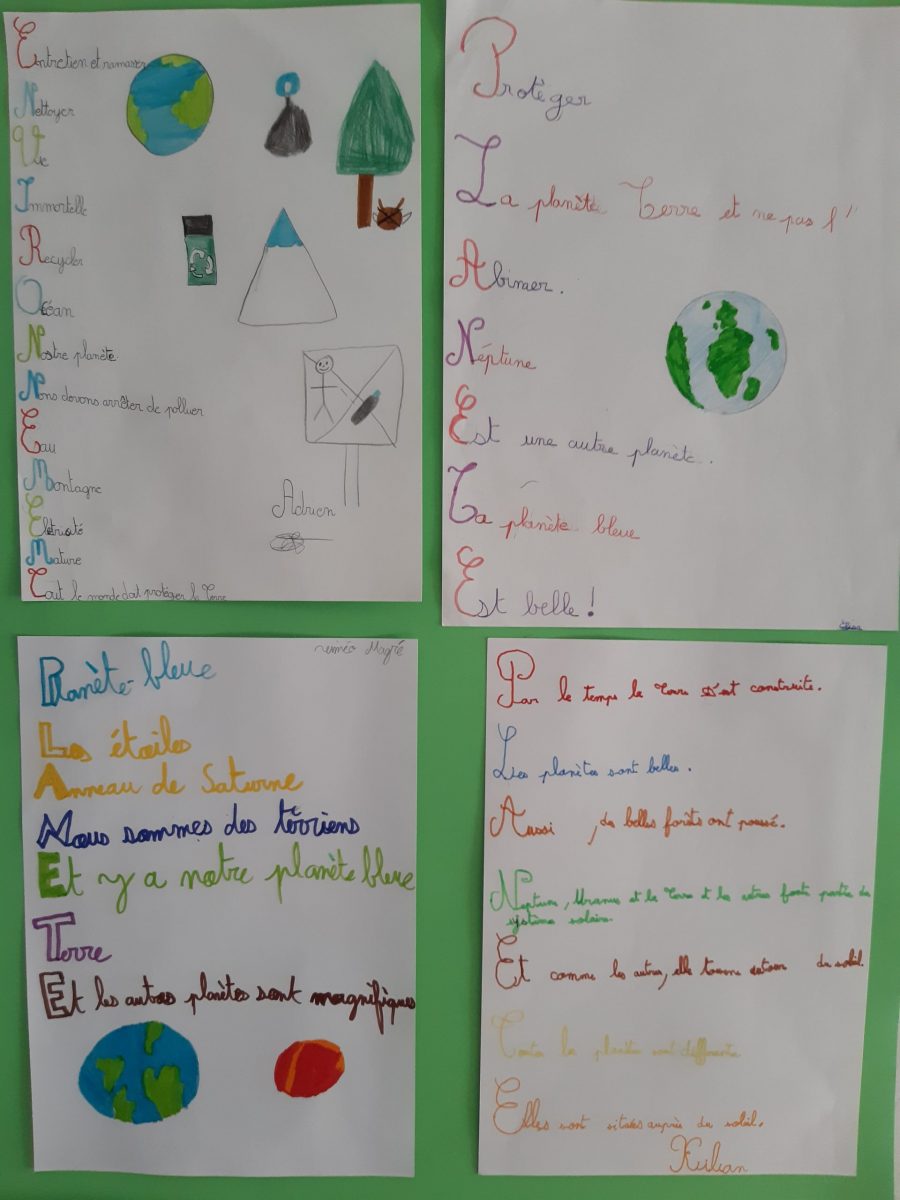 Entretien et ramasser
Nettoyer
Vie
Immortelle
Recycler
Océan
Nostre planète
Nous devons arrêter de polluer
Eau
Montagne
Eletricité
Nature
Tout le monde doit protéger la Terre
Adrien
Protéger
La planète Terre et ne pas l'
Abimer.
Néptune
Est une autre planète.
La planète bleue
Est belle!
Planète bleue
Magré
Les étoiles
Anneau de Saturne
Nous sommes des terriens
Et y a nœtre planète bleue
Terre
Et les autres planètes sont magnifiques
Par le temps la Terre s'est construite.
Les planètes sont belles.
Aussi, de belles forêts ont poussé.
Neptune, Uranus et la Terre et les autres font partie du
système solaire.
Et comme les autres, elle tourne autour du soleil.
Toute les planètes sont différente
Elles sont situées auprès du soleil.